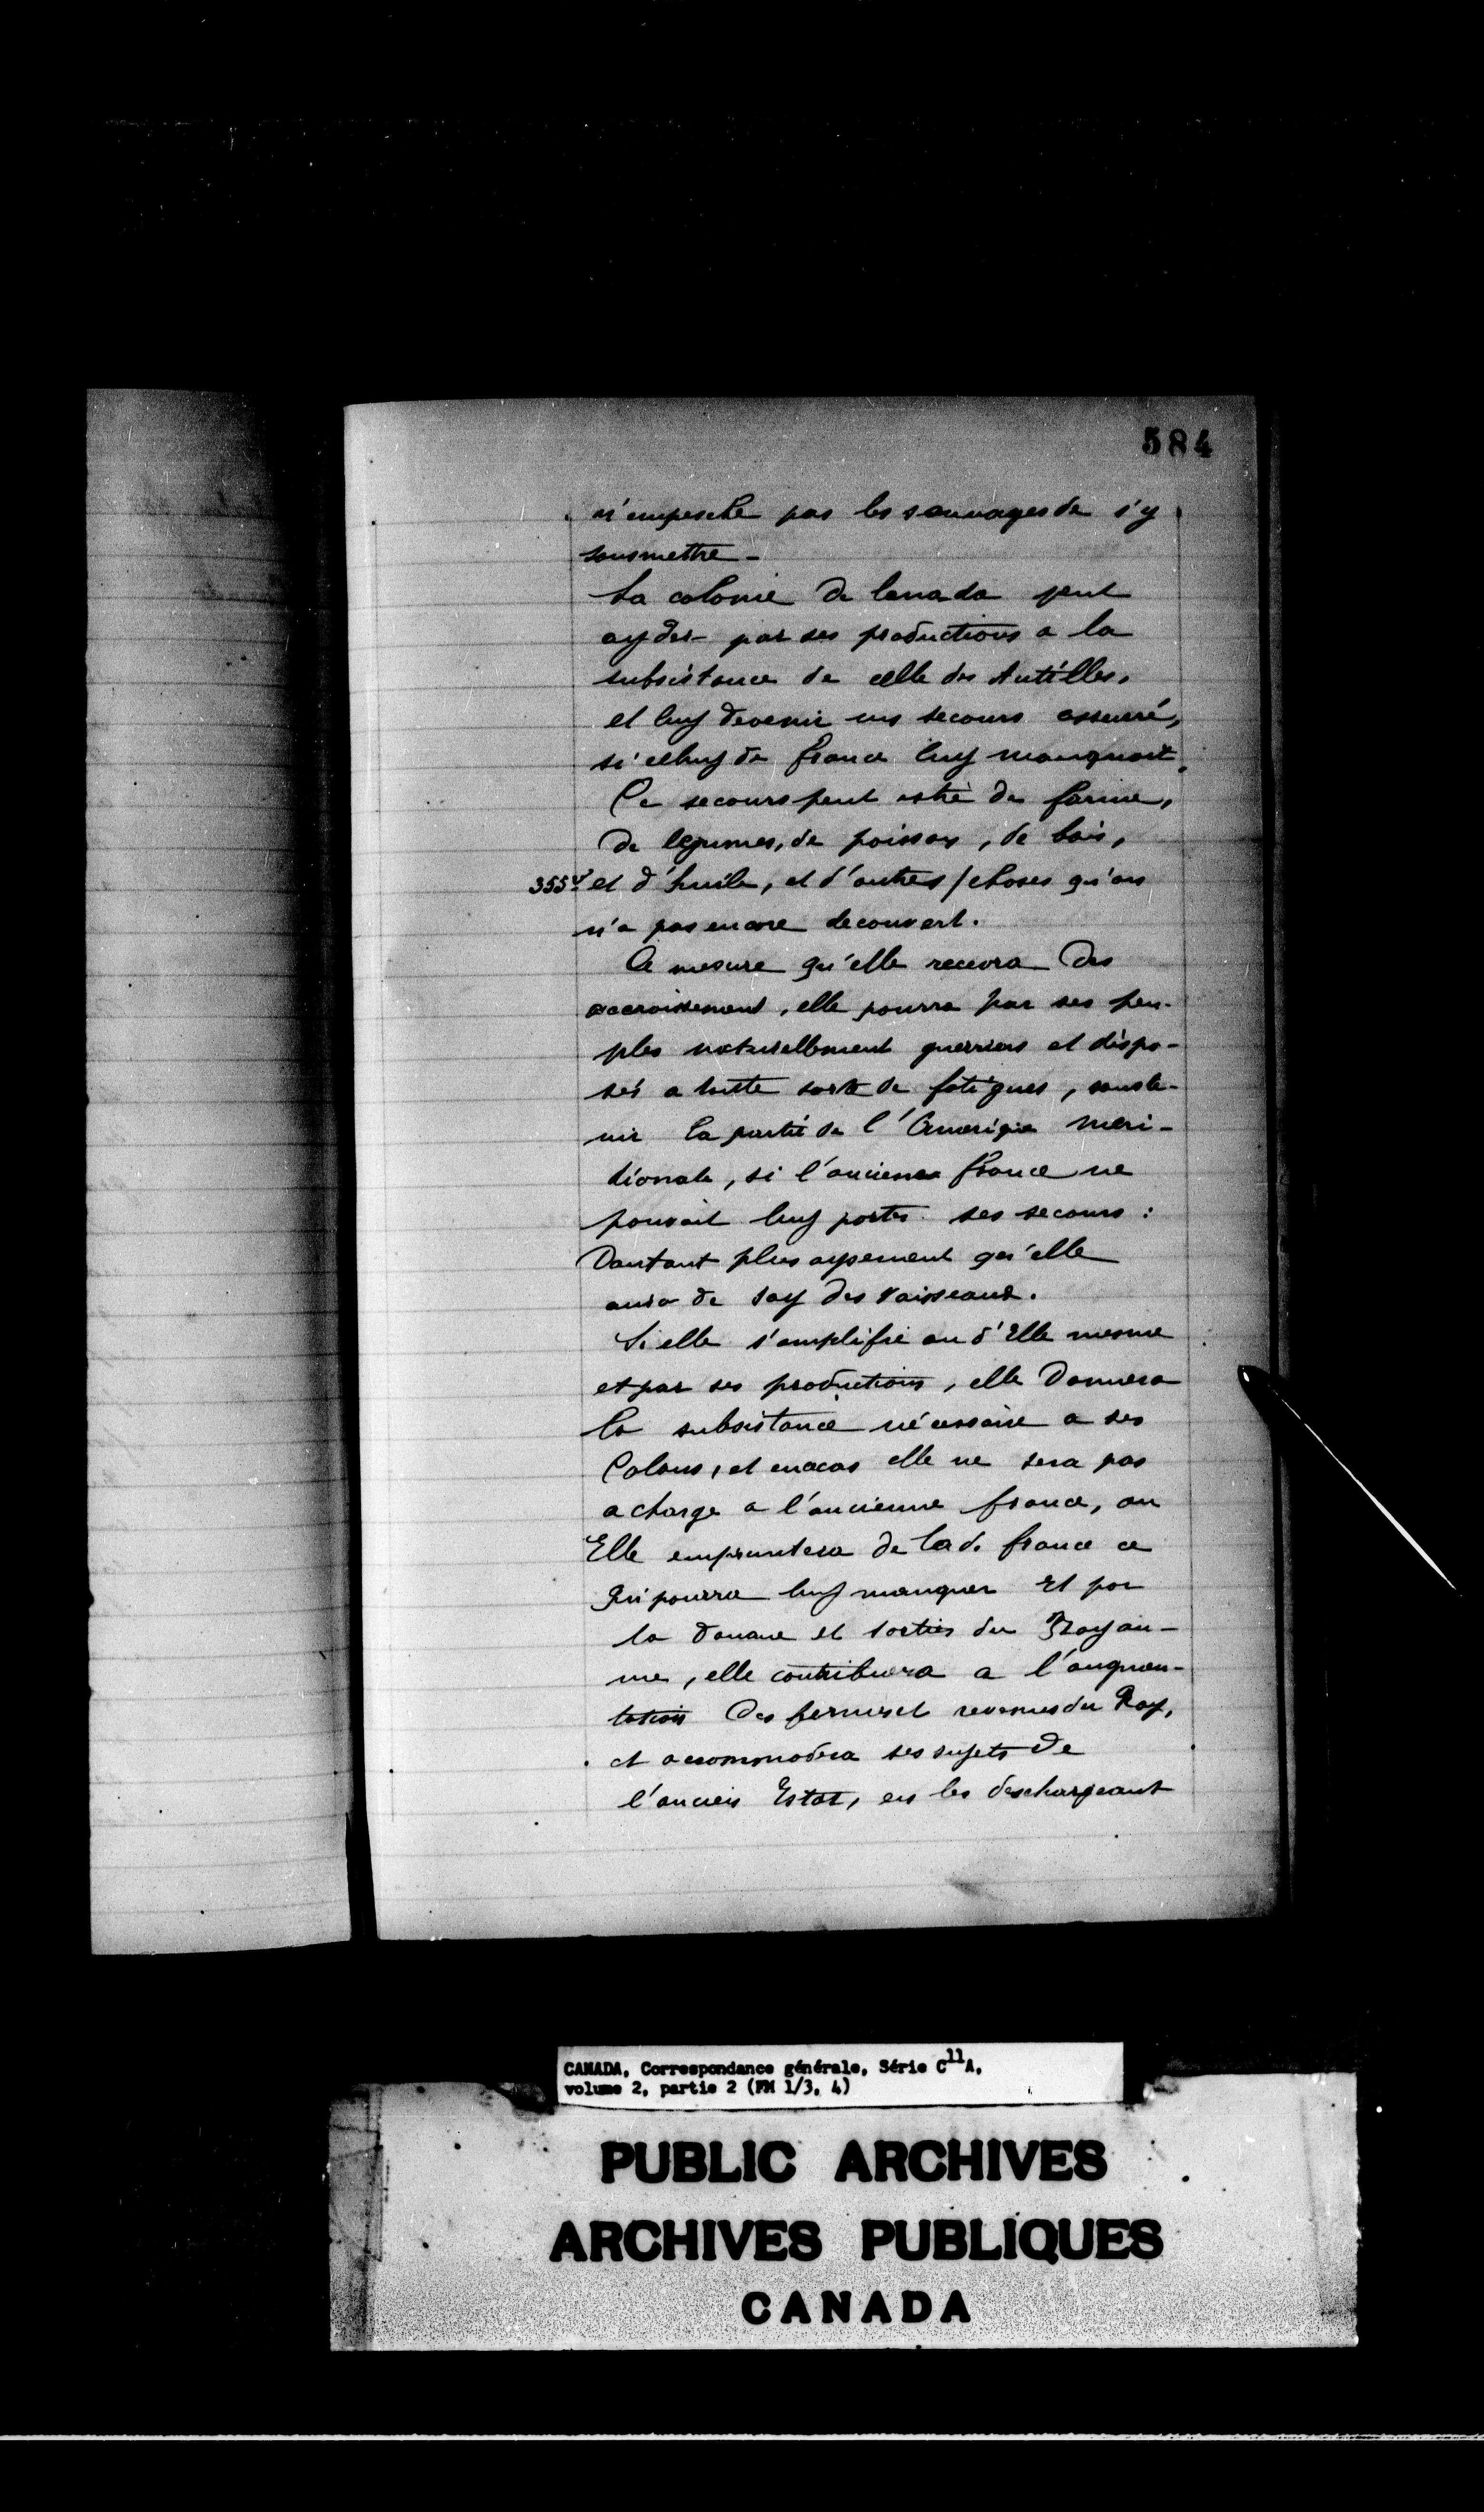 584
n'empesche pas les sauvages de s'y
sousmettre -
La colonie de Canada peut
ayder par ses productions a la
subsistance de celle des Antilles,
et luy devenir un secours asseuré,
si celuy de france luy manquoit.
Ce secours peut estre de farine,
de legumes, de poisson, de bois,
355v et d'huile, et d'autres / choses qu'on
n'a pas encore decouvert.
A mesure qu'elle recevra des
accroissement, elle pourra par ses peu-
ples naturellement guerriers et dispo-
sés a toutte sorte de fatigues, souste-
nir la partie de l'Amerique meri-
dionale, si l'ancienne france ne
pouvait luy porter ses secours :
Dautant plus aysement qu'elle
aura de soy des vaisseaux.
Si elle s'amplifie ou d'Elle mesme
et par ses productions, elle donnera
la subsistance nécessaire a ses
Colons, et en ce cas elle ne sera pas
a charge a l'ancienne france, ou
Elle empruntera de lad. france ce
Qui pourra luy manquer Et par
la douane et sorties du Royau-
me, elle contribuera a l'augmen-
tation des fermes et revenus du Roy,
et accommodera ses sujets de
l'ancien Estat, en les deschargeant
CANADA, Correspondance générale, Série C11A,
volume 2, partie 2 (FM 1/3, 4)
PUBLIC ARCHIVES
ARCHIVES PUBLIQUES
CANADA